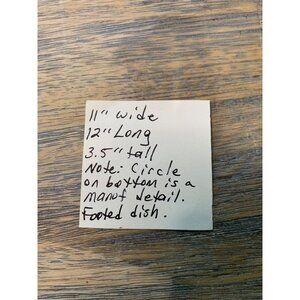 11" wide
12" Long
3.5" tall
Note: Circle
on bottom is a
manuf detail.
Footed dish.